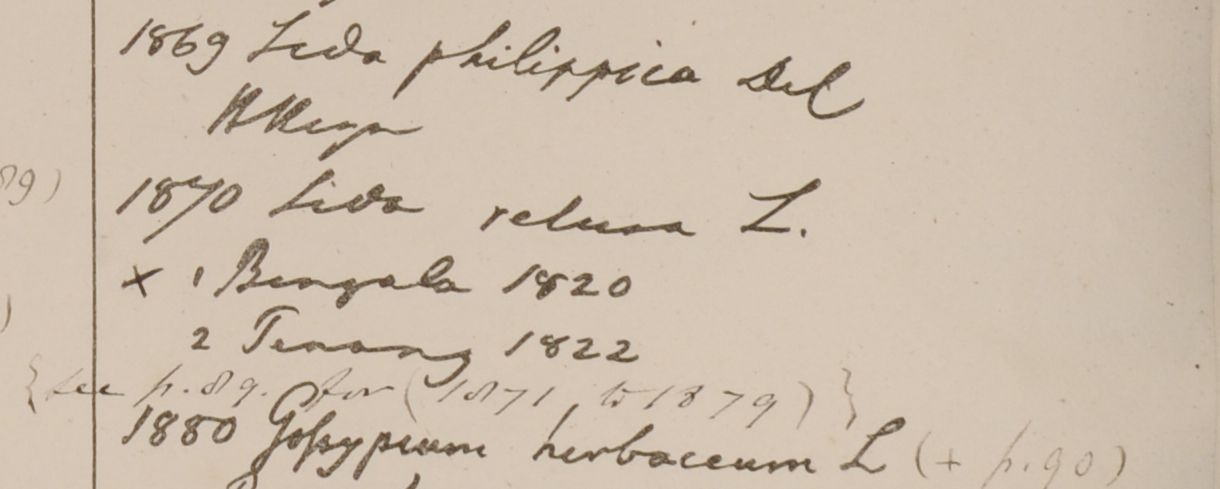 1869 Sida philippica Del
H Heyn
89)
1870 Sida retusa L.
× 1 Bengala 1820
2 Penang 1822
{see p. 89. for (1871 to 1879)}
1880 Goſsypium herbaceum L (+ p. 90)